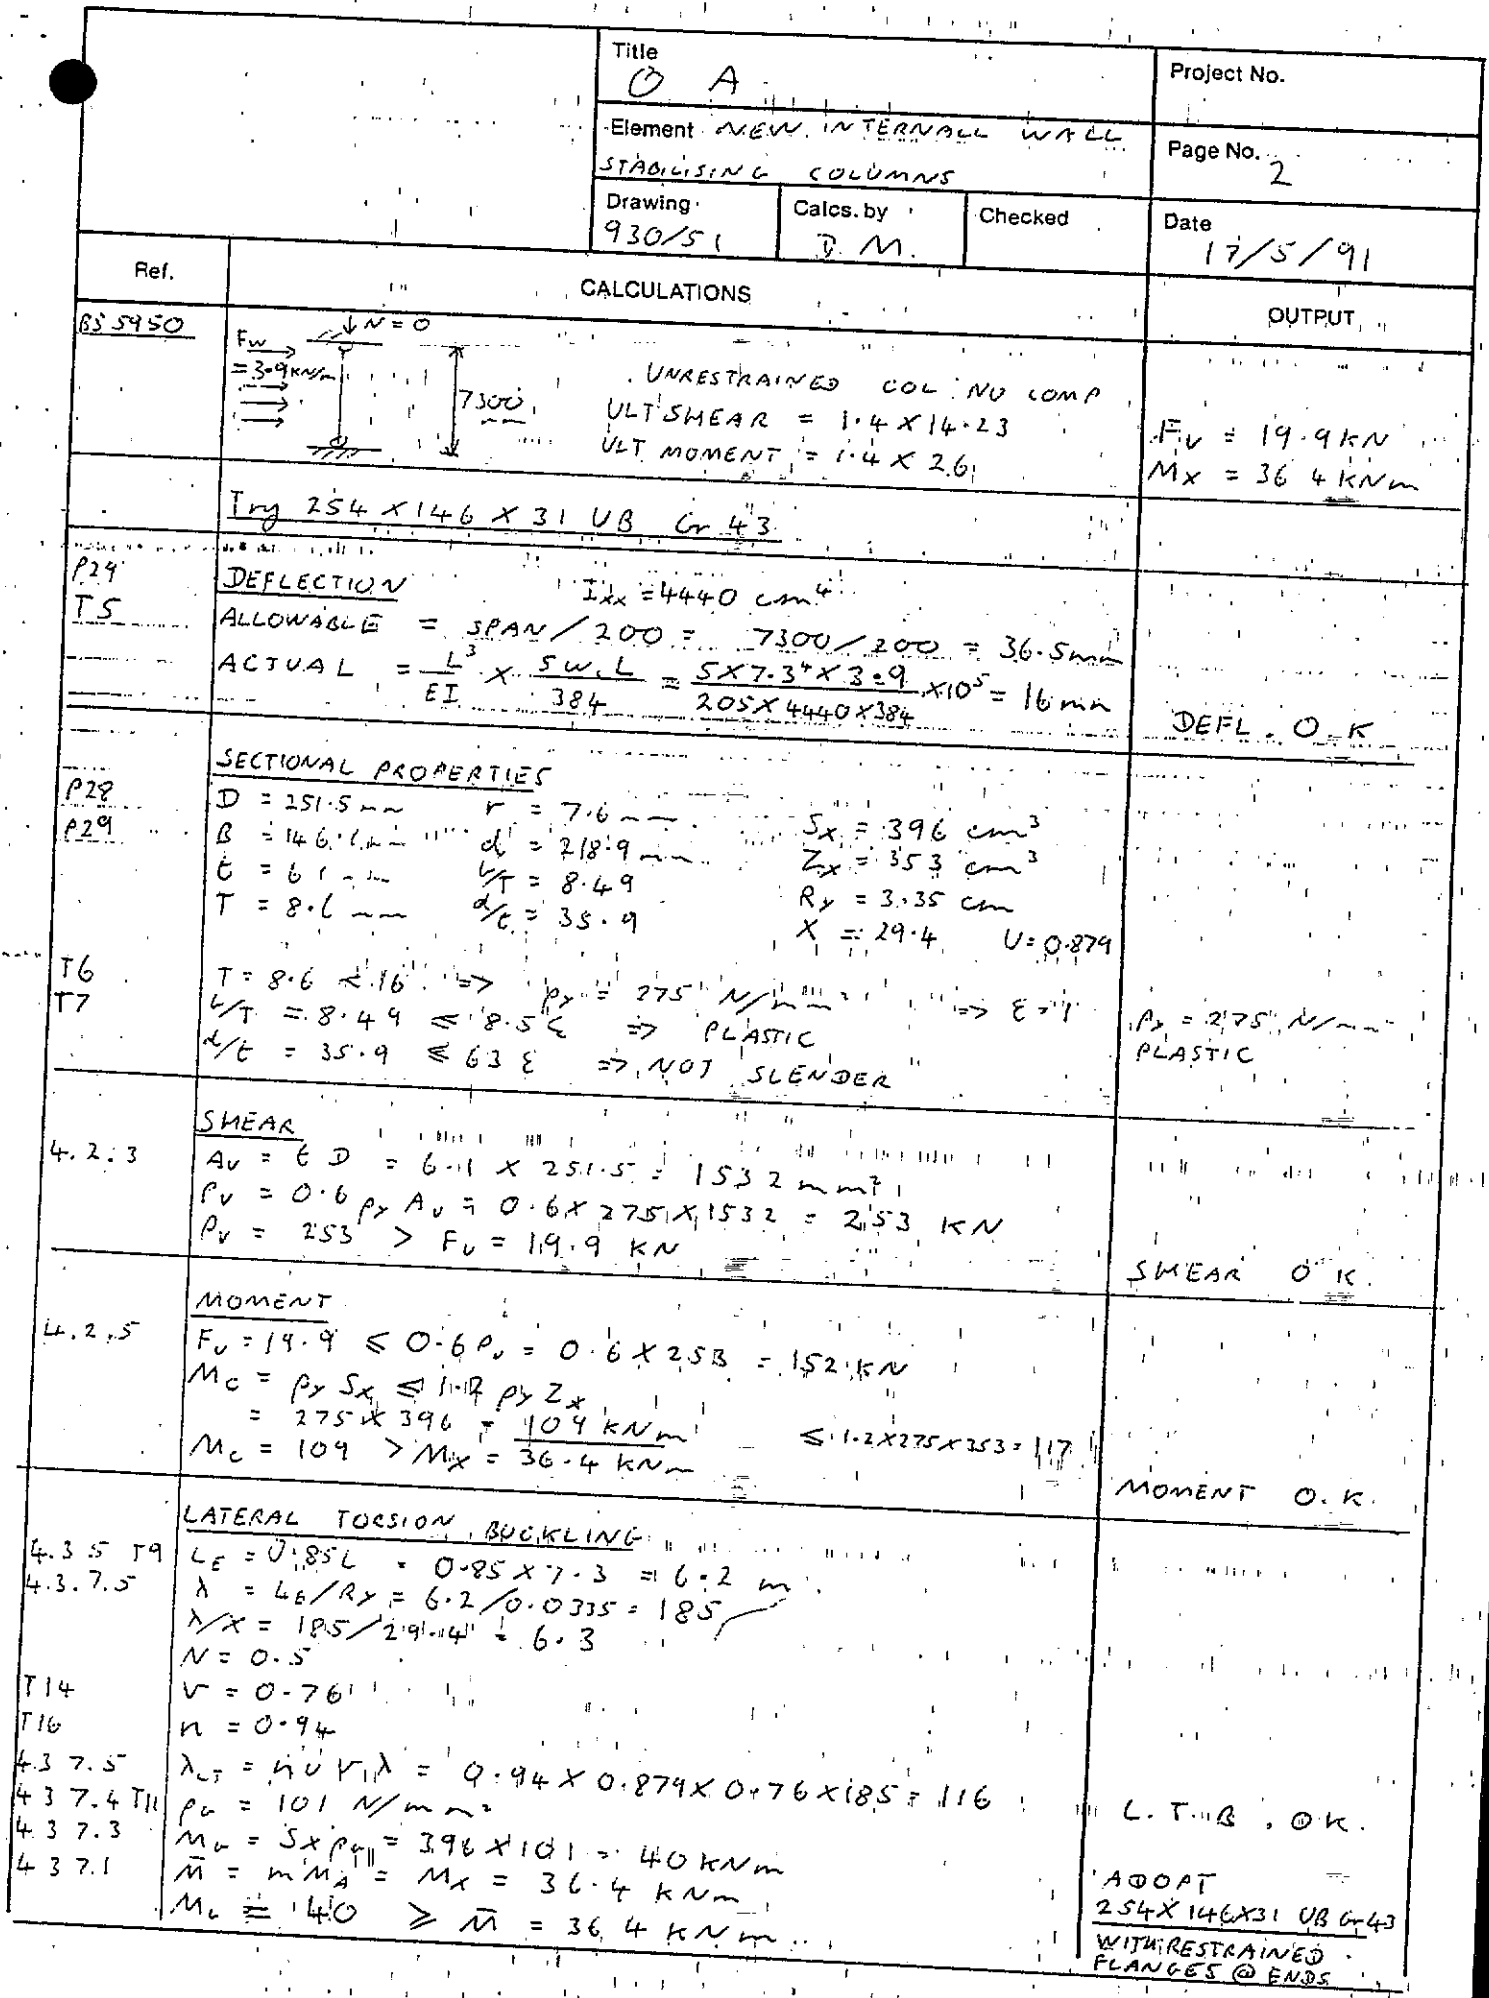 Title
O A
Project No.
Element NEW INTERNALL WALL
STABILISING COLUMNS
Page No. 2
Drawing
930/51
Calcs. by
D. M.
Checked
Date
17/5/91
Ref.
CALCULATIONS
OUTPUT
BS 5950
N = 0
Fw
= 3.9 KN/m
7300
UNRESTRAINED COL NO COMP
ULT SHEAR = 1.4 X 14.23
ULT MOMENT = 1.4 X 26
Fv = 19.9 KN
Mx = 36 4 KNm
Try 254 X 146 X 31 UB Gr 43
P29
DEFLECTION Ixx = 4440 cm⁴
T5
ALLOWABLE = SPAN / 200 = 7300/200 = 36.5mm
ACTUAL = L³/EI X 5w.L/384 = 5X7.3⁴X3.9/205X4440X384 X10⁵ = 16mm
DEFL. O.K
SECTIONAL PROPERTIES
P28
D = 251.5 mm r = 7.6 mm Sx = 396 cm³
P29
B = 146.1 mm d = 218.9 mm Zx = 353 cm³
t = 6 1 mm b/T = 8.49 Ry = 3.35 cm
T = 8.6 mm d/t = 35.9 X = 29.4 U = 0.879
T6
T = 8.6 < 16 => py = 275 N/mm² => ε = 1
T7
b/T = 8.49 ≤ 8.5ε => PLASTIC
py = 275 N/mm²
PLASTIC
d/t = 35.9 ≤ 63 ε => NOT SLENDER
SHEAR
4.2.3
Av = t D = 6.1 X 251.5 = 1532 mm²
Pv = 0.6 py Av = 0.6 X 275 X 1532 = 253 KN
Pv = 253 > Fv = 19.9 KN
SHEAR O K.
MOMENT
4.2.5
Fv = 19.9 ≤ 0.6 Pv = 0.6 X 253 = 152 KN
Mc = py Sx ≤ 1.2 py Zx
= 275 X 396 = 109 KNm ≤ 1.2X275X353 = 117
Mc = 109 > Mx = 36.4 KNm
MOMENT O.K.
LATERAL TORSION BUCKLING
4.3 5 T9
LE = 0.85L = 0.85 X 7.3 = 6.2 m
4.3.7.5
λ = LE/Ry = 6.2/0.0335 = 185
λ/X = 185/29.4 = 6.3
N = 0.5
T14
v = 0.76
T16
n = 0.94
4.3 7.5
λLT = n u v λ = 0.94 X 0.879 X 0.76 X 185 = 116
4 3 7.4 T11
pb = 101 N/mm²
L.T.B. OK.
4 3 7.3
Mb = Sx pb = 396 X 101 = 40 KNm
4 3 7.1
M̄ = m MA = Mx = 36.4 KNm
Mb = 40 ≥ M̄ = 36 4 KNm
ADOPT
254 X 146X31 UB Gr 43
WITH RESTRAINED
FLANGES @ ENDS